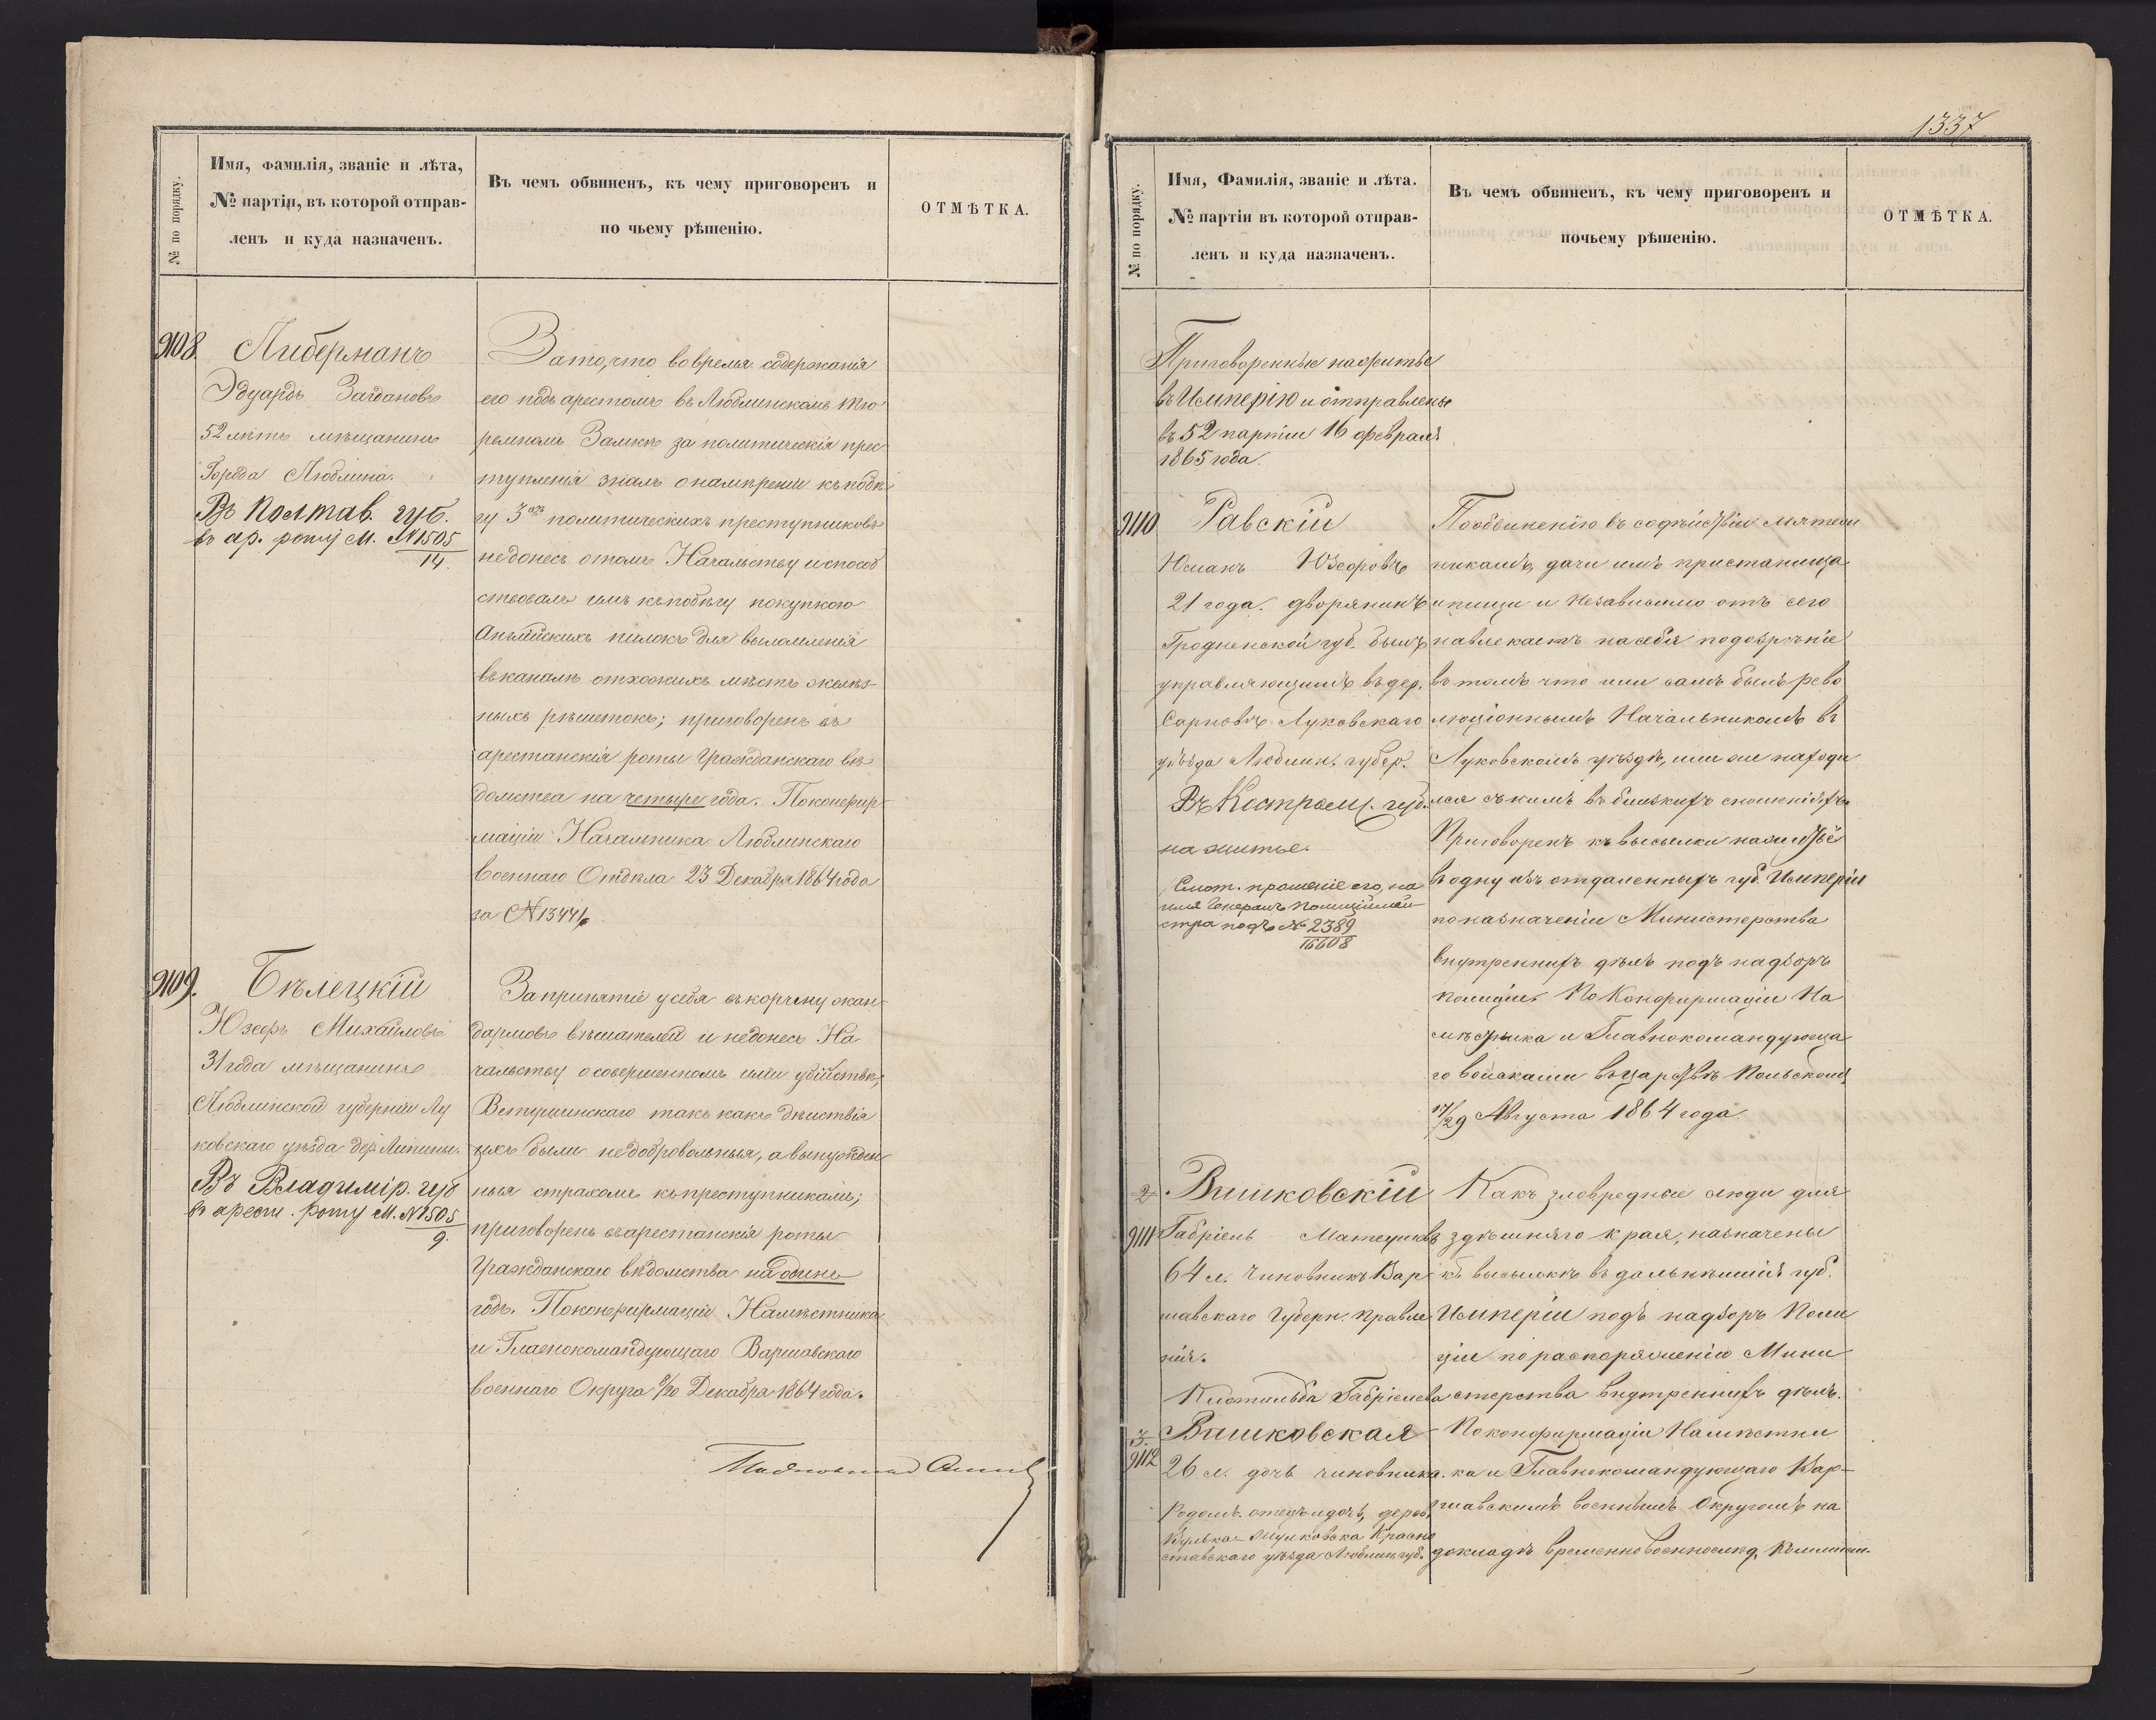 № по порядку.
Имя, фамилія, званіе и лѣта,
№ партіи, въ которой отправ-
ленъ и куда назначенъ.
Въ чемъ обвиненъ, къ чему приговоренъ и
по чьему рѣшенію.
ОТМѢТКА.
9108
Либерманъ
Эдуардъ
52 лѣтъ мѣщанинъ
Города Люблина.
Въ Полтав. губ.
въ ар. роту М. №1505
14.
За то, что во время содержанія
его подъ арестомъ въ Люблинскомъ тю
ремномъ Замкѣ за политическія прес
тупленія зналъ о намѣреніи къ побѣ
гу 3хъ политическихъ преступниковъ
недонесъ о томъ Начальству и способ
ствовалъ имъ къ побѣгу покупкою
Англійскихъ пилокъ для выломленія
въ каналѣ отхожихъ мѣстъ желѣз-
ныхъ рѣшетокъ; приговоренъ въ
арестанскія роты Гражданскаго вѣ
домства на четыре года. По конфир-
маціи Начальника Люблинскаго
военнаго Отдѣла 23 Декабря 1864 года
за №13441.
9109.
Бѣлецкій
Юзефъ Михайловъ
31 года мѣщанинъ
Люблинской губерніи Лу
ковскаго уѣзда дер. Липины.
Въ Владимір. губ
въ арест. роту М. №1505
9.
За принятіе у себя въ корчму жан-
дармовъ вѣшателей и недонесъ На
чальству о совершенномъ ими убійствѣ
такъ какъ дѣйствія
ихъ были недобровольныя, а вынужден
ныя страхомъ къ преступникамъ;
приговоренъ въ арестанскія роты
Гражданскаго вѣдомства на одинъ
годъ. По конфирмаціи Намѣстника
и Главнокомандующаго Варшавскаго
военнаго Округа 8/20 Декабря 1864 года.
1337
№ по порядку.
Имя, Фамилія, званіе и лѣта.
№ партіи въ которой отправ-
ленъ и куда назначенъ.
Въ чемъ обвиненъ, къ чему приговоренъ и
почьему рѣшенію.
ОТМѢТКА.
Приговоренные на житье
въ Имперію и отправлены
въ 52 партіи 16 февраля
1865 года.
9110
Равскій
Юліанъ Юзефовъ
21 года. дворянинъ
Гродненской губ. былъ
управляющимъ въ дер.
Сарновъ Луковскаго
уѣзда Люблин. губер.
Въ Костром. губ.
на житье.
Смот. прошеніе его, на
имя Генералъ Полиціймей
стра подъ № 2389
16608
По обвиненію въ содѣйствіи мятеж
никамъ, дачи имъ пристанища
и пищи и независимо отъ сего
навлекаетъ на себя подозрѣніе
въ томъ что или самъ былъ рево
люціоннымъ Начальникомъ въ
Луковскомъ уѣздѣ, или же находи
лся съ нимъ въ близкихъ сношеніяхъ.
Приговоренъ къ высылки на житьё
въ одну изъ отдаленныхъ губ. Имперіи
по назначеніи Министерства
внутреннихъ дѣлъ подъ надзоръ
полиціи. По Конфирмаціи На
мѣстника и Главнокомандующа
го войсками въ царствѣ Польскомъ
17/29 Августа 1864 года.
2
9111
Вишковскій
Габріель Матеушовъ
64 л. чиновникъ Вар
шавскаго Губерн. Правле
нія.
Клотильда Габріелева
3.
9112
Вишковская
26 л. дочь чиновника.
Родомъ отецъ и дочь, дерев.
Красно
ставскаго уѣзда Люблин. губ.
Какъ зловредные люди для
здѣшняго края, назначены
къ высылкѣ въ дальнѣйшія губ.
Имперіи подъ надзоръ Поли
ціи по распоряженію Мини
стерства внутреннихъ дѣлъ.
По конфирмаціи Намѣстни
ка и Главнокомандующаго Вар-
шавскимъ военнымъ Округомъ на
докладѣ временно военнослед. Коммисіи.